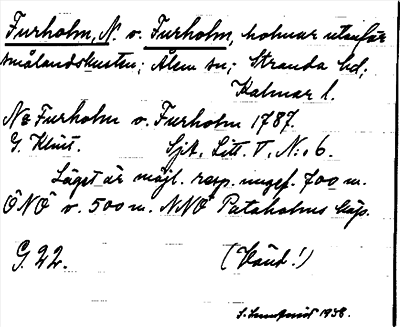 Furholm, N. o. Furholm, holmar utanför
smålandskusten; Ålem sn; Stranda hd;
Kalmar l.
No Furholm o. Furholm 1787.
G. Klint. Sjk. Litt. T, N:o 6.
Läget är möjl. resp. ungef. 700 m.
ÖNÖ o. 500 m. NNÖ Pataholms kap.
G. 22. (Vänd!)
1938.